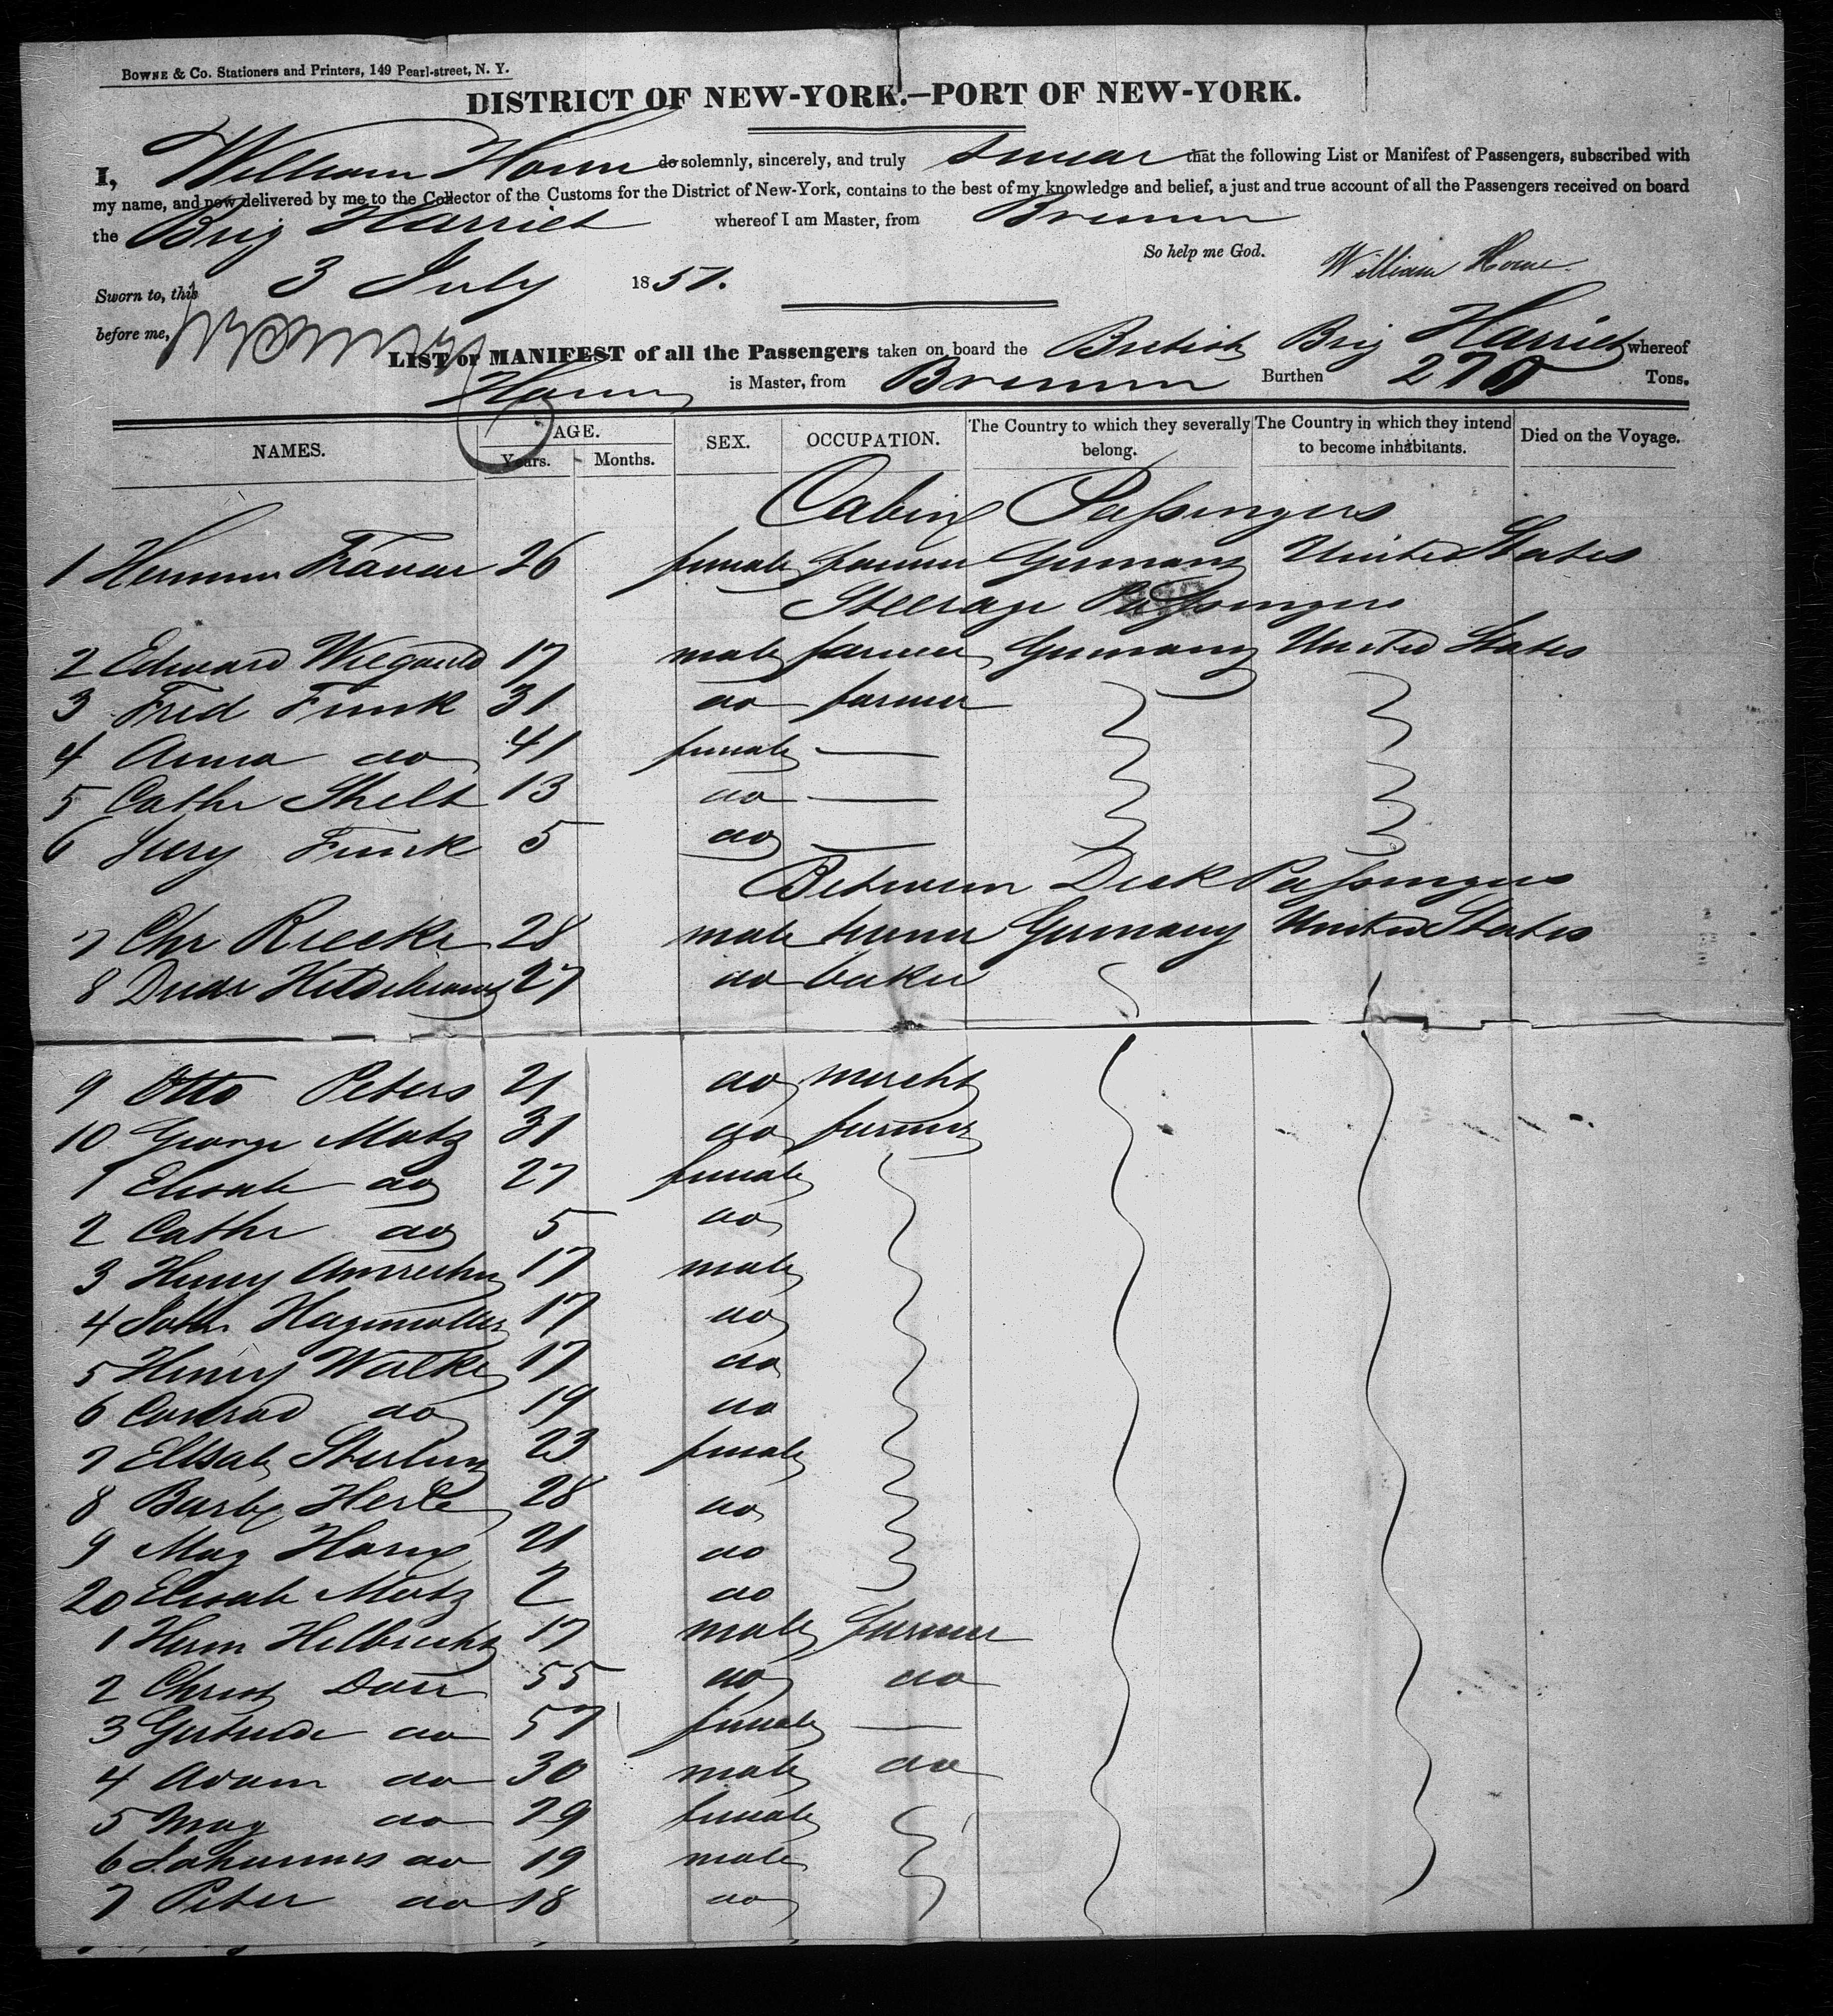 BOWNE & Co. Stationers and Printers, 149 Pearl-street, N. Y.
DISTRICT OF NEW-YORK.—PORT OF NEW-YORK.
I, William Horne do solemnly, sincerely, and truly swear that the following List or Manifest of Passengers, subscribed with
my name, and now delivered by me to the Collector of the Customs for the District of New-York, contains to the best of my knowledge and belief, a just and true account of all the Passengers received on board
the Brig Harriet whereof I am Master, from Bremen
So help me God. William Horne
Sworn to, this 3 July 1851.
before me,
LIST or MANIFEST of all the Passengers taken on board the British Brig Harriet whereof
Horne is Master, from Bremen Burthen 270 Tons.
NAMES. AGE. Years. Months. SEX. OCCUPATION. The Country to which they severally belong. The Country in which they intend to become inhabitants. Died on the Voyage.
Cabin Passengers
1 Herman 26 female farmer Germany United States
Steerage Passengers
2 Edward Wiegand 17 male farmer Germany United States
3 Fred Funk 31 do farmer
4 Anna do 41 female —
5 Cathr 13 do —
6 Funk 5 do —
Between Deck Passengers
7 Chr Reecke 28 male Germany United States
8 27 do baker
9 Otto Peters 21 do mercht
10 George Motz 31 do farmer
1 Elisab do 27 female
2 Cathr do 5 do
3 Henry 17 male
4 Joh. Hagemoller 17 do
5 Henry Walke 17 do
6 Conrad do 19 do
7 Elisab 23 female
8 Barb. 28 do
9 Mag 21 do
20 Elisab Motz 2 do
1 Herm Helbrecht 17 male farmer
2 Christ 55 do do
3 Gertrude do 57 female —
4 Adam do 30 male do
5 Mag do 29 female
6 Johannes do 19 male
7 Peter do 18 do